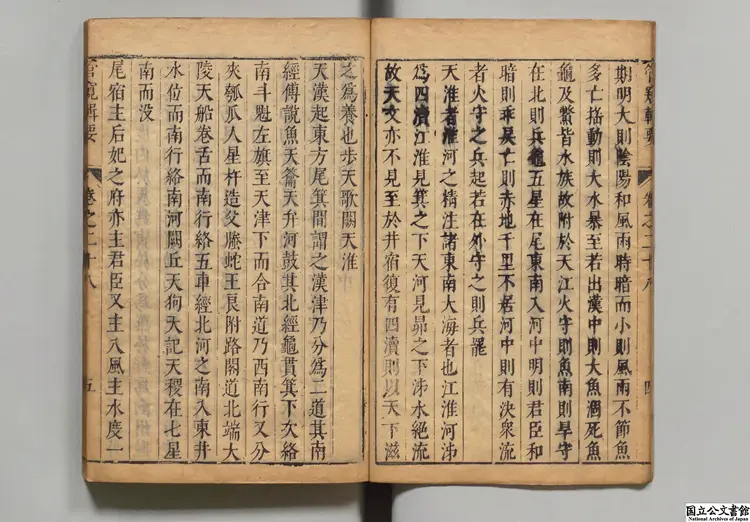 期明大則陰陽和風雨時暗而小則風雨不節魚
多亡揺動則大水暴至若出漢中則大魚涸死魚
龜及鱉皆水族故附於天江火守則魚南則旱守
在北則兵龜五星在尾東南入河中明則君臣和
暗則乖戾亡則赤地千里不居河中則有決衆流
者火守之兵起若在外守之則兵罷
天淮者淮河之精注諸東南大海者也江淮河泲
爲四瀆江淮見箕之下天河見昴之下泲水絶流
故天文亦不見至於井宿復有四瀆則以天下滋
管窺輯要
卷之二十八
四
之爲養也步天歌闕天淮
天漢起東方尾箕間謂之漢津乃分爲二道其南
經傅說魚天籥天弁河鼓其北經龜貫箕下次絡
南斗魁左旗至天津下而合南道乃西南行又分
夾瓠瓜人星杵造父螣蛇王良附路閣道北端大
陵天船卷舌而南行絡五車經北河之南入東井
水位而南行絡南河闕丘天狗天記天稷在七星
南而没
尾宿主后妃之府亦主君臣又主八風主水度一
管窺輯要
卷之二十八
五
国立公文書館
National Archives of Japan